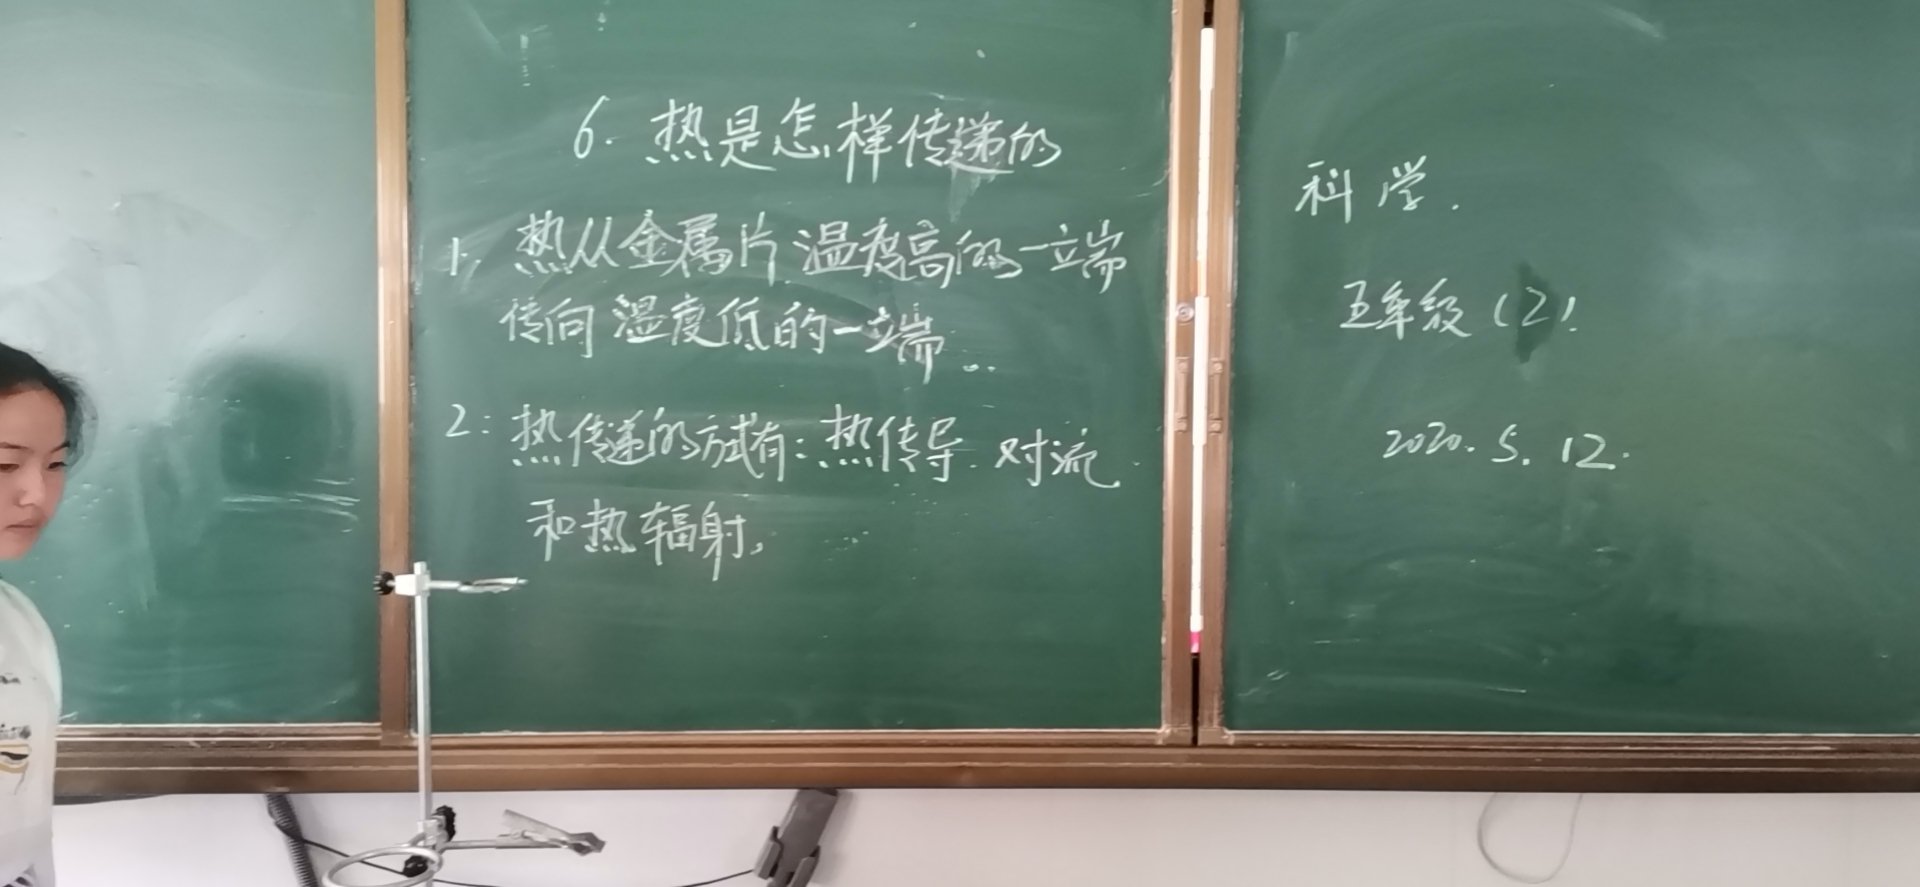 6. 热是怎样传递的
1. 热从金属片温度高的一端
传向温度低的一端..
2: 热传递的方式有:热传导.对流
和热辐射,
科学.
五年级(2).
2020.5.12.